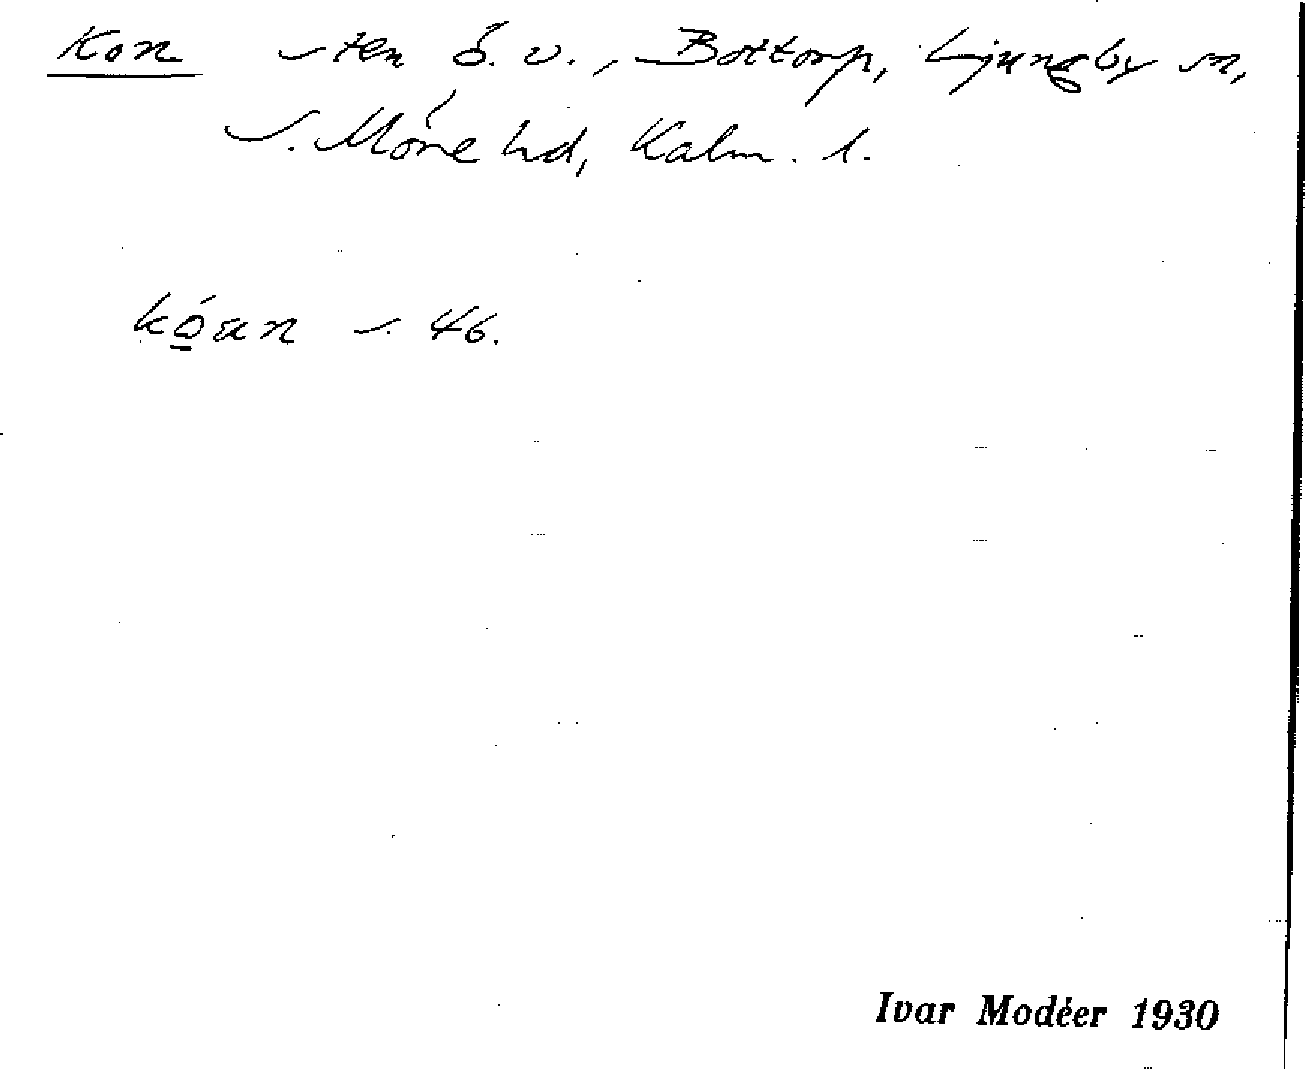 Kon sten ö. v., Bottorp, Ljungby sn,
S. Möre hd, Kalm. l.
kóan s. 46.
Ivar Modéer 1930